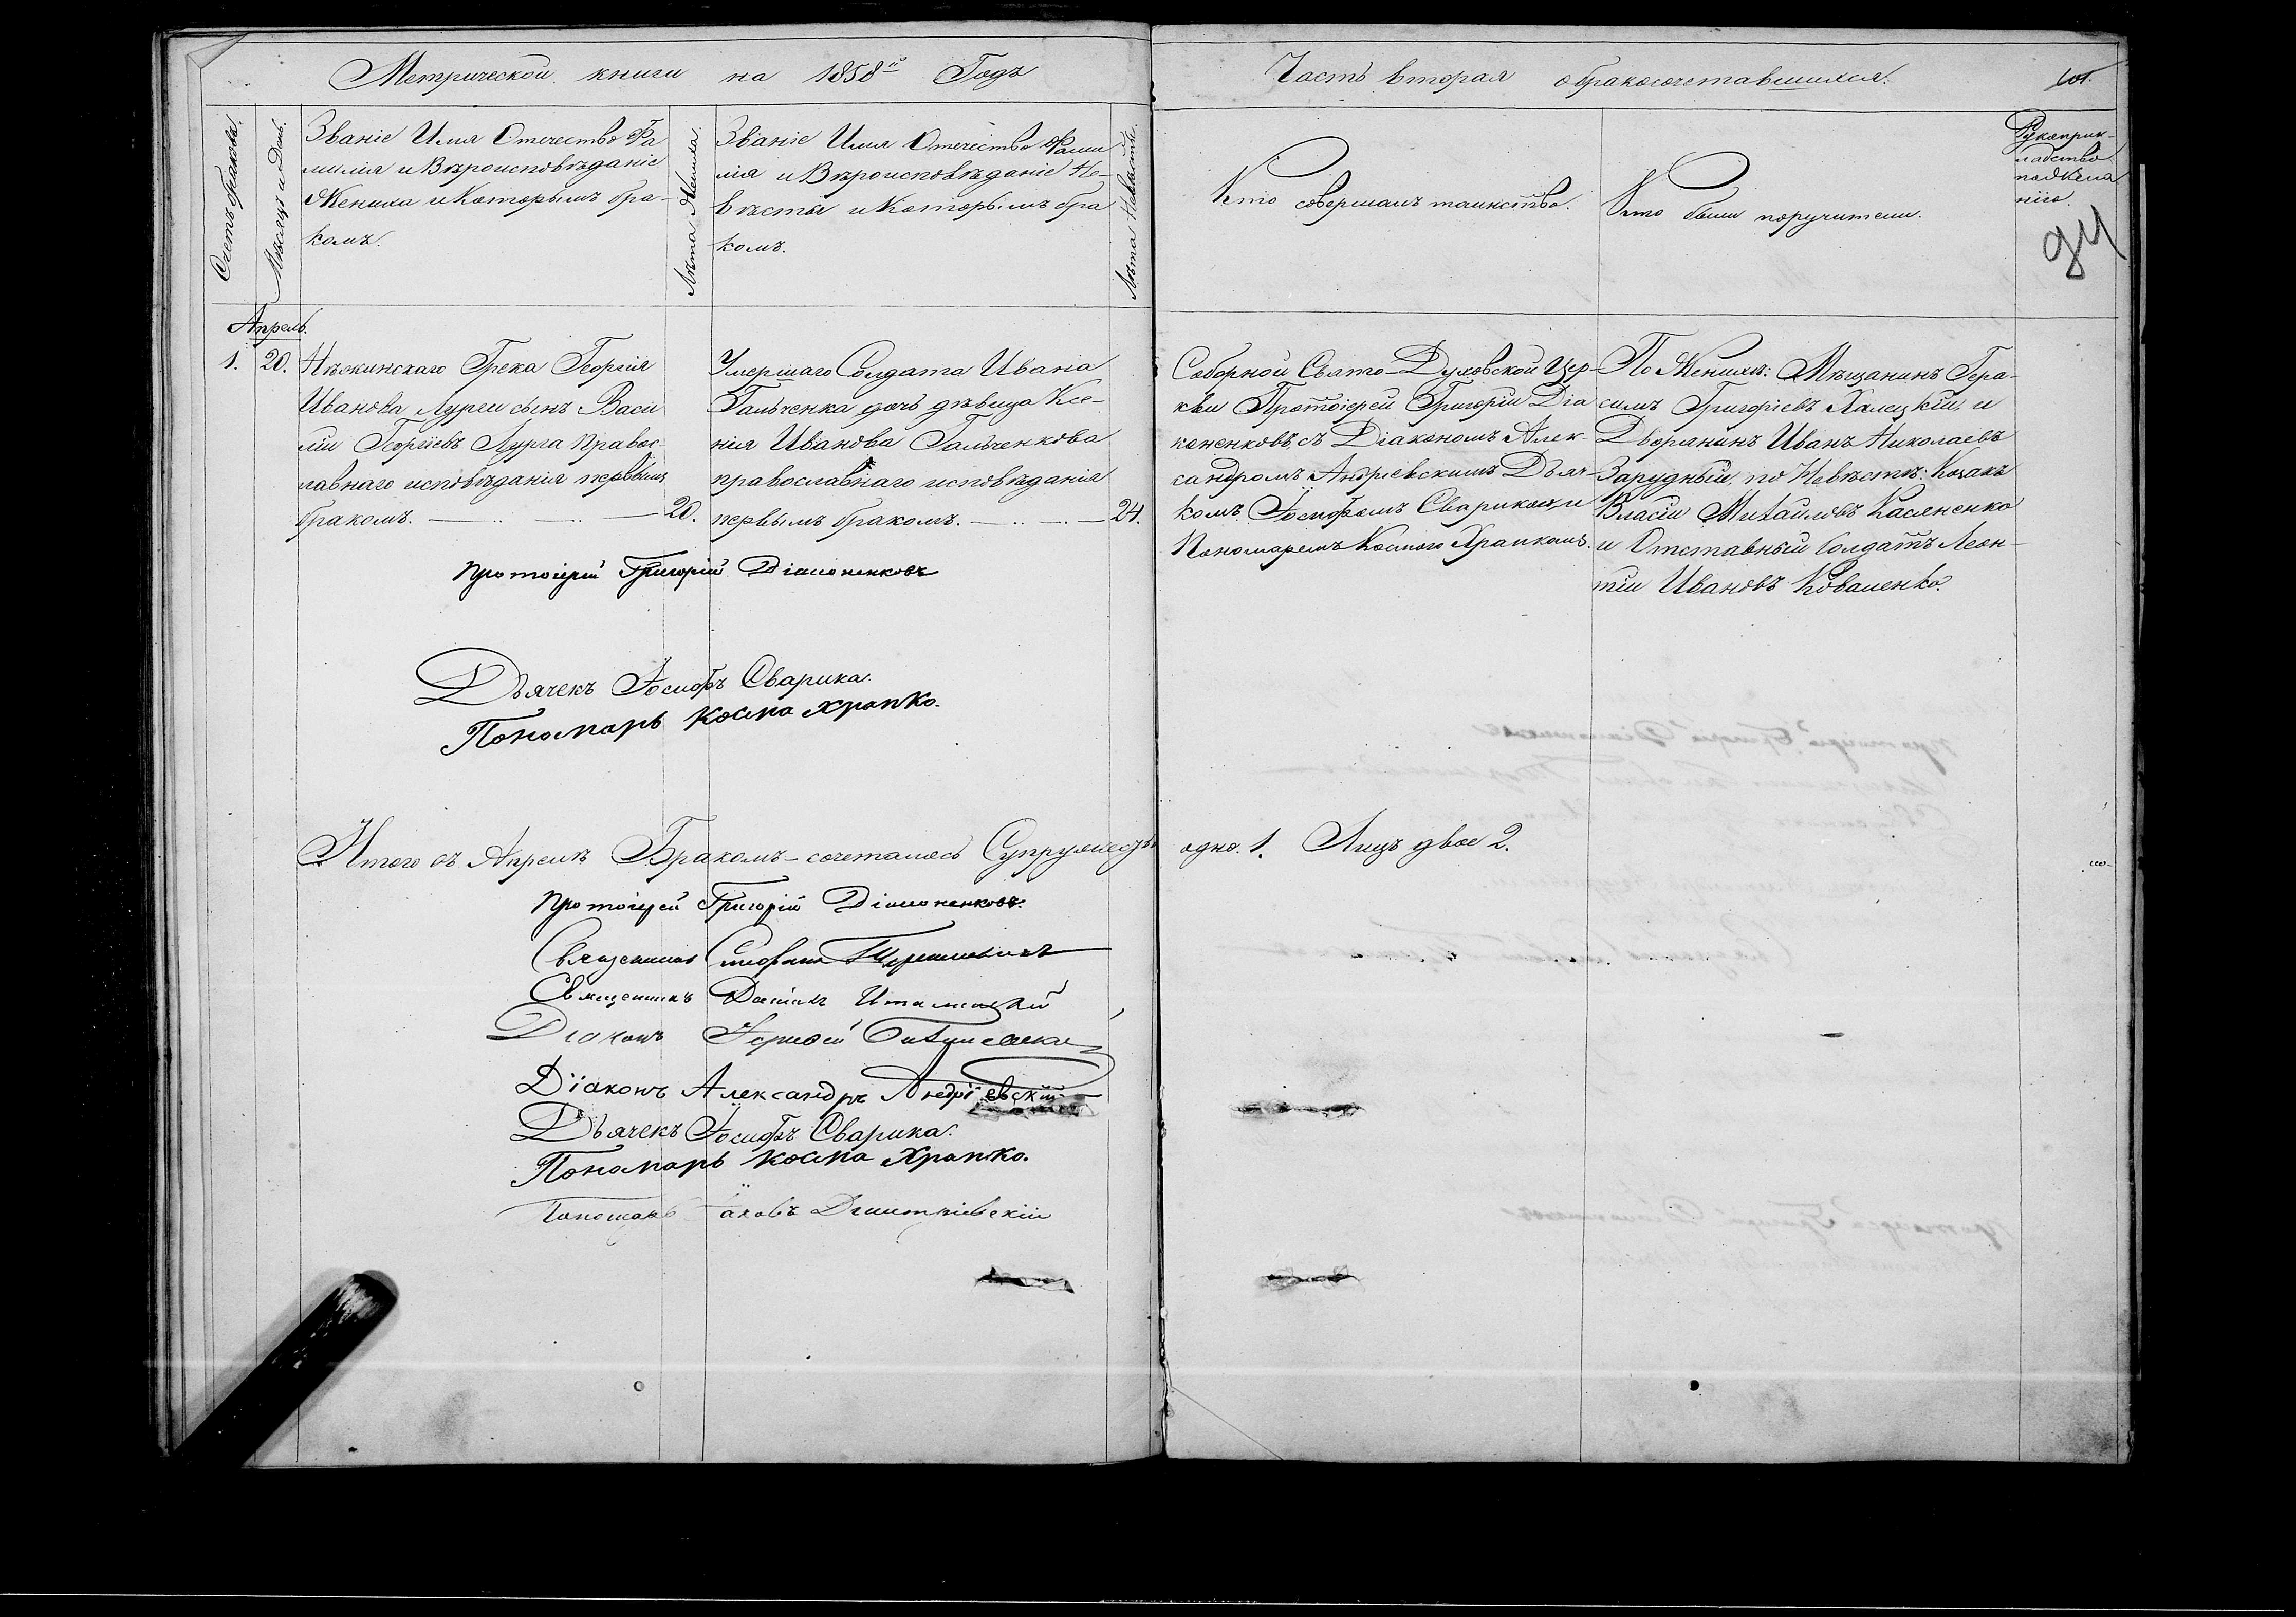 Метрической книги на 1858й Годъ
Часть вторая о бракосочетавшихся.
101.
Счетъ браковъ.
Мѣсяцъ и День.
Званіе Имя Отечество Фа
милія и Вѣроисповѣданіе
Жениха и Которымъ бра-
комъ.
Лѣта Жениха.
Званіе Имя Отечество Фами
лія и Вѣроисповѣданіе Не-
вѣсты и Которымъ бра
комъ.
Лѣта Невѣсты.
Кто совершалъ таинство.
Кто были поручители.
Рукоприк-
ладство
по Жела
нію.
94
Апрель.
1. 20.
Нѣжинскаго Грека Георгія
Иванова Лурги сынъ Васи
лій Георгіевъ Лурга Правос
лавнаго исповѣданія первымъ
бракомъ. 20.
Умершаго Солдата Ивана
Гальченка дочь дѣвица Ксе-
нія Иванова Гальченкова
православнаго исповѣданія
первымъ бракомъ. 24.
Соборной Свято-Духовской Цер-
кви Протоіерей Григорій Діа
коненковъ, съ Діакономъ Алек-
сандромъ Андріевскимъ Дьяч-
комъ Іосифомъ Сварикою и
Пономаремъ Космою Храпкомъ.
По Женихѣ: Мѣщанинъ Гера-
симъ Григоріевъ Халецкій, и
Дворянинъ Иванъ Николаевъ
Зарудный, по Невѣстѣ: Козакъ
Власій Михайловъ Касяненко
и Отставный Солдатъ Леон-
тій Ивановъ Коваленко.
Протоіерей Григорій Діаконенковъ
Дьячекъ Іосифъ Сварика.
Пономарь Косма Храпко.
Итого въ Апрелѣ Бракомъ-сочеталось Супружествъ одно. 1. Лицъ двое 2.
Протоіерей Григорій Діаконенковъ.
Священникъ
Священникъ Даніилъ
Діаконъ
Діаконъ Александръ Андріевскій
Дьячекъ Іосифъ Сварика.
Пономарь Косма Храпко.
Пономарь Іаковъ Дмитріевскій